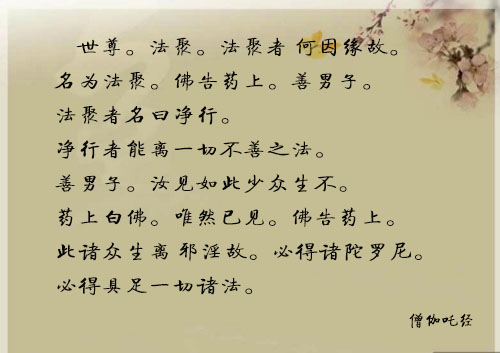 世尊。法聚。法聚者 何因缘故。
名为法聚。佛告药上。善男子。
法聚者名曰净行。
净行者能离一切不善之法。
善男子。汝见如此少众生不。
药上白佛。唯然已见。佛告药上。
此诸众生离 邪淫故。必得诸陀罗尼。
必得具足一切诸法。
僧伽吒经